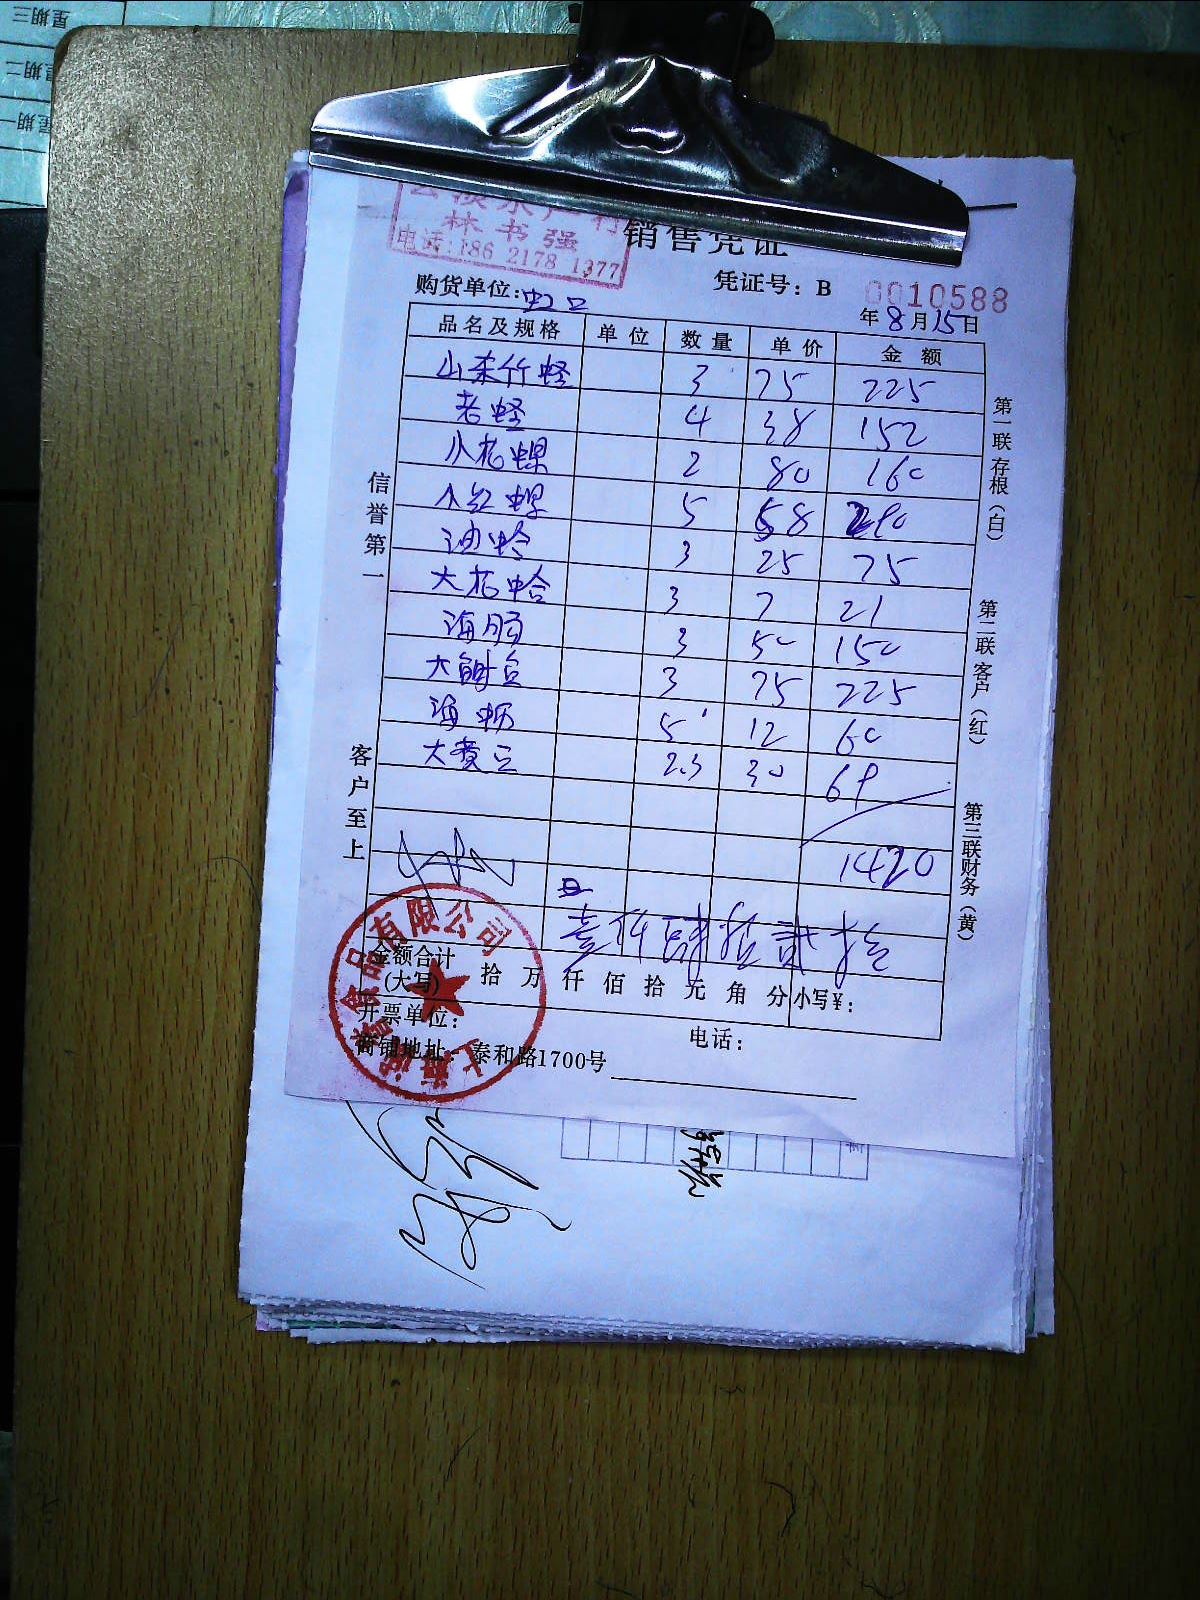 星期三
星期二
星期一
林书强
电话:186 2178 1377
销售凭证
凭证号：B 0010588
购货单位:虹口
年8月15日
品名及规格 单位 数量 单价 金额
山东竹蛏 3 75 225
老蛏 4 38 152
小花螺 2 80 160
小红螺 5 58 290
油蛤 3 25 75
大花蛤 3 7 21
海肠 3 50 150
大鲍 3 75 225
海蛎 5 12 60
大黄 2.3 30 69
1420
壹仟肆拾贰拾
金额合计
(大写) 拾万仟佰拾元角分 小写¥:
开票单位:
电话:
商铺地址: 泰和路1700号
信誉第一
客户至上
第一联存根(白)
第二联客户(红)
第三联财务(黄)
食品有限公司
上海